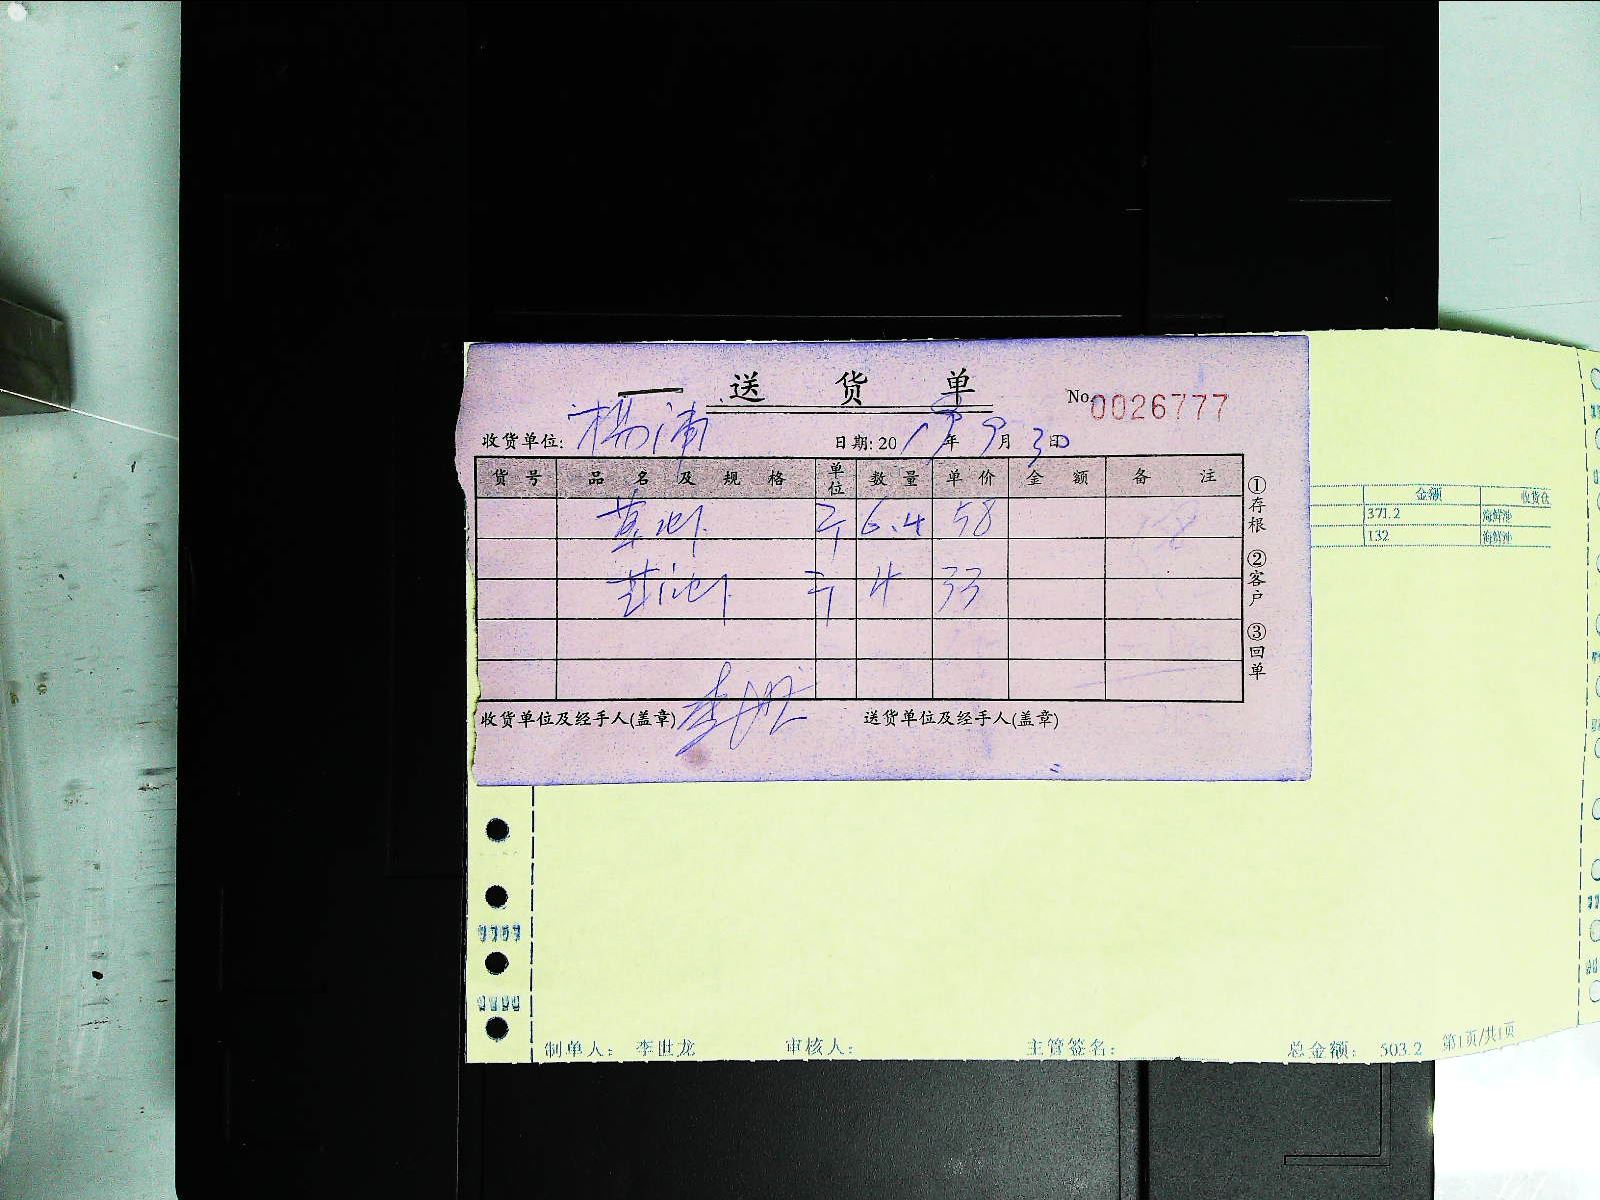 送 货 单
No. 0026777
收货单位: 杨浦 日期: 2019年9月30日
货号 品名及规格 单位 数量 单价 金额 备注
草虾 斤 6.4 58
基虾 斤 4 33
①存根 ②客户 ③回单
收货单位及经手人(盖章) 送货单位及经手人(盖章)
金额 收货仓
371.2 海鲜池
132 海鲜池
制单人: 李世龙 审核人: 主管签名: 总金额: 503.2 第1页/共1页